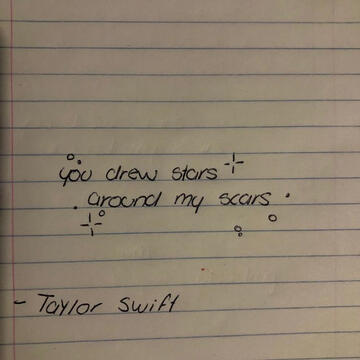 you drew stars
around my scars
- Taylor Swift